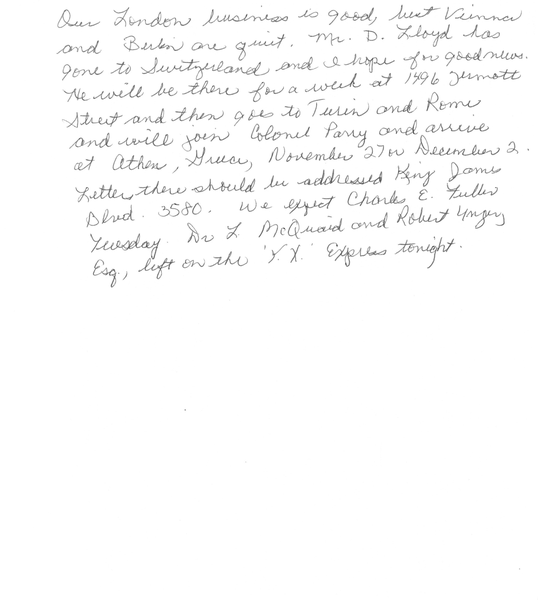 Our London business is good, but Vienna
and Berlin are quiet. Mr. D. Lloyd has
gone to Switzerland and I hope for good news.
He will be there for a week at 1496 Zermott
Street and then goes to Turin and Rome
and will join Colonel Parry and arrive
at Athen, Greece, November 27 or December 2.
Letters there should be addressed King James
Blvd. 3580. We expect Charles E. Fuller
Tuesday. Dr L McQuaid and Robert Unger,
Esq., left on the 'Y.X.' Express tonight.